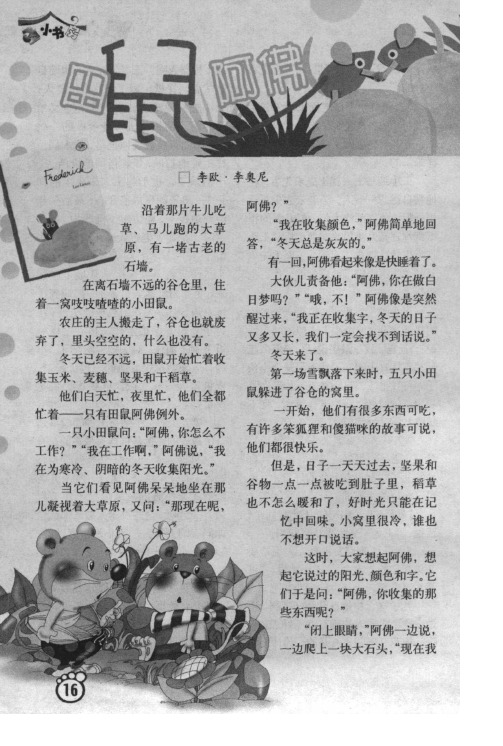 小书房
田鼠阿佛
Frederick
□ 李欧·李奥尼
沿着那片牛儿吃
草、马儿跑的大草
原，有一堵古老的
石墙。
在离石墙不远的谷仓里，住
着一窝吱吱喳喳的小田鼠。
农庄的主人搬走了，谷仓也就废
弃了，里头空空的，什么也没有。
冬天已经不远，田鼠开始忙着收
集玉米、麦穗、坚果和干稻草。
他们白天忙，夜里忙，他们全都
忙着——只有田鼠阿佛例外。
一只小田鼠问：“阿佛，你怎么不
工作？”“我在工作啊，”阿佛说，“我
在为寒冷、阴暗的冬天收集阳光。”
当它们看见阿佛呆呆地坐在那
儿凝视着大草原，又问：“那现在呢，
阿佛？”
“我在收集颜色，”阿佛简单地回
答，“冬天总是灰灰的。”
有一回，阿佛看起来像是快睡着了。
大伙儿责备他：“阿佛，你在做白
日梦吗？”“哦，不！”阿佛像是突然
醒过来，“我正在收集字，冬天的日子
又多又长，我们一定会找不到话说。”
冬天来了。
第一场雪飘落下来时，五只小田
鼠躲进了谷仓的窝里。
一开始，他们有很多东西可吃，
有许多笨狐狸和傻猫咪的故事可说，
他们都很快乐。
但是，日子一天天过去，坚果和
谷物一点一点被吃到肚子里，稻草
也不怎么暖和了，好时光只能在记
忆中回味。小窝里很冷，谁也
不想开口说话。
这时，大家想起阿佛，想
起它说过的阳光、颜色和字。它
们于是问：“阿佛，你收集的那
些东西呢？”
“闭上眼睛，”阿佛一边说，
一边爬上一块大石头，“现在我
16